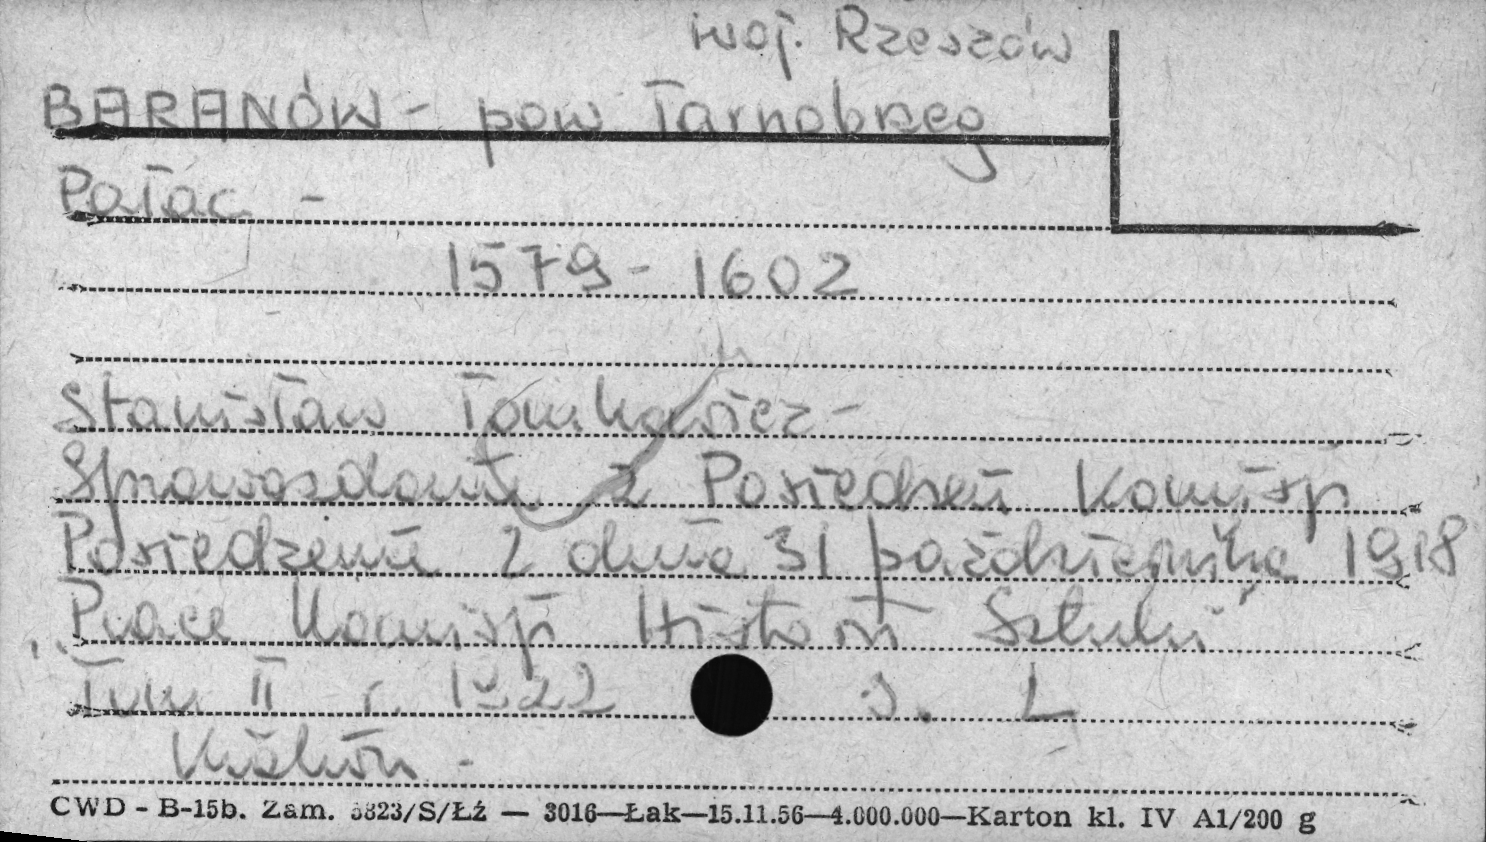 woj. Rzeszów
BARANÓW - pow Tarnobrzeg
Pałac -
1579 - 1602
Stanisław Tomkowicz -
Sprawozdania z Posiedzeń Komisji
Posiedzenie z dnia 31 października 1918
"Prace Komisji Historii Sztuki"
Tom II r. 1922 s. L
Kraków -
CWD - B-15b. Zam. 3823/S/Łź — 3016—Łak—15.11.56—4.000.000—Karton kl. IV A1/200 g